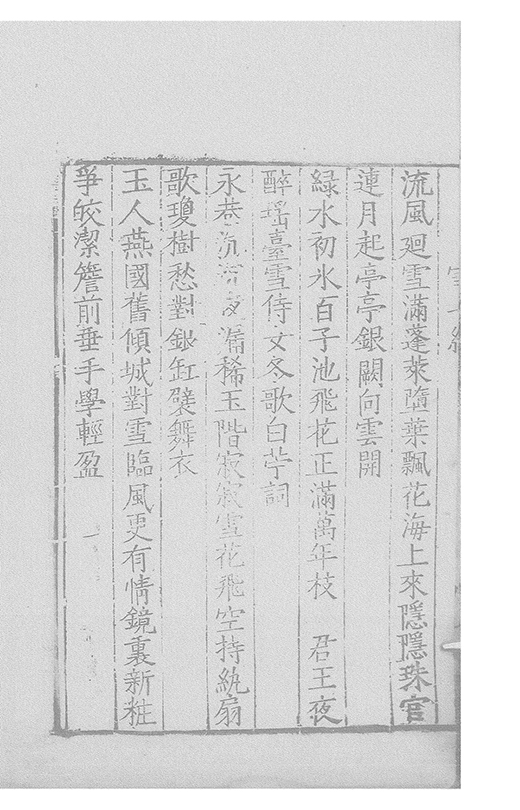 流風廻雪滿蓬萊墮葉飄花海上來隱隱珠宮
連月起亭亭銀闕向雲開
綠水初氷百子池飛花正滿萬年枝　君王夜
醉瑶臺雪侍女冬歌白苧詞
永巷沉沉夜漏稀玉階寂寂雪花飛空持紈扇
歌瓊樹愁對銀缸襞舞衣
玉人燕國舊傾城對雪臨風更有情鏡裏新粧
爭皎潔簷前垂手學輕盈